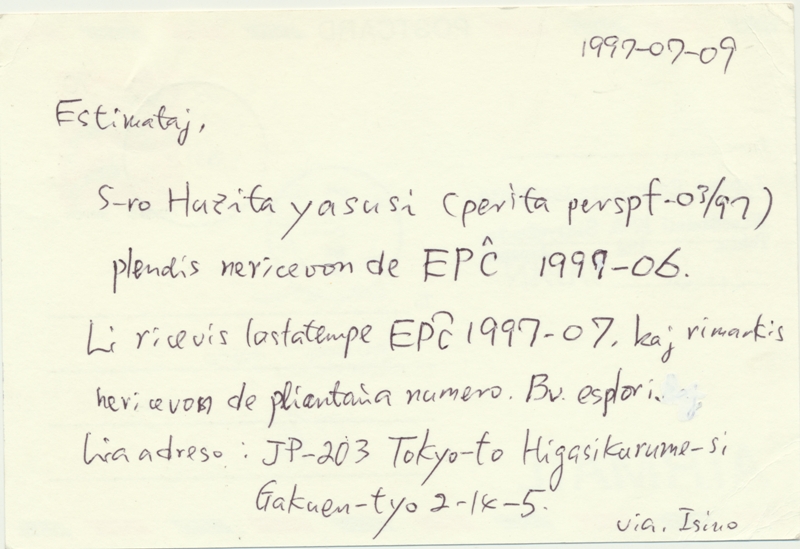 1997-07-09
Estimataj,
S-ro Huzita yasusi (perita perspf-03/97)
plendis nericevon de EPĈ 1997-06.
Li ricevis lastatempe EPĈ 1997-07, kaj rimarkis
nericevon de pliantaŭa numero. Bv. esplori.
Lia adreso: JP-203 Tokyo-to Higasikurume-si
Gakuen-tyo 2-14-5.
via. Isino